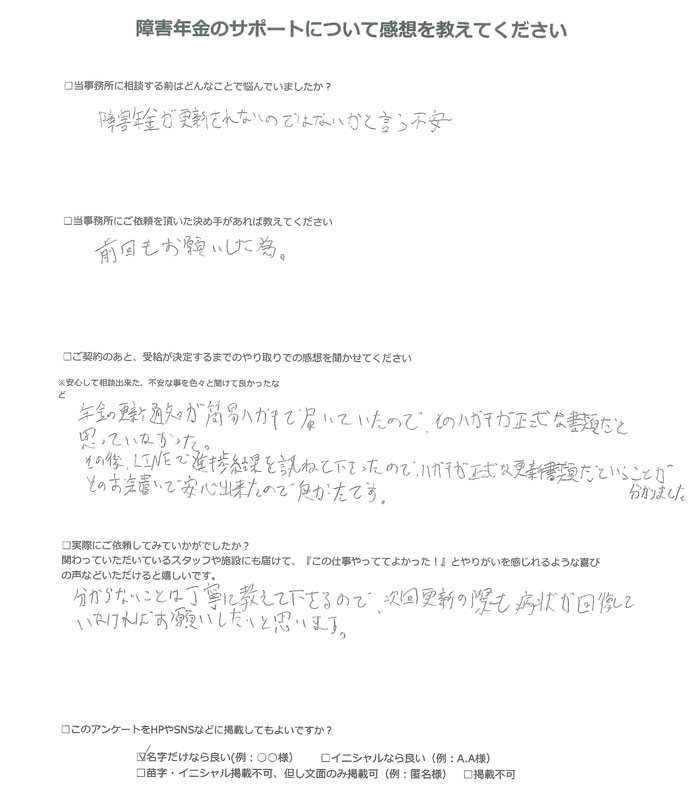 障害年金のサポートについて感想を教えてください
□当事務所に相談する前はどんなことで悩んでいましたか？
障害年金が更新されないのではないかと言う不安
□当事務所にご依頼を頂いた決め手があれば教えてください
前回もお願いした為。
□ご契約のあと、受給が決定するまでのやり取りでの感想を聞かせてください
※安心して相談出来た、不安な事を色々と聞けて良かったな
ど
年金の更新通知が簡易ハガキで届いていたので、そのハガキが正式な書類だと
思っていなかった。
その後、LINEで進捗結果を訊ねて下さったので、ハガキが正式な更新書類だということが
分かりました。
そのお気遣いで安心出来たので良かたです。
□実際にご依頼してみていかがでしたか？
関わっていただいているスタッフや施設にも届けて、『この仕事やっててよかった！』とやりがいを感じれるような喜び
の声などいただけると嬉しいです。
分からないことは丁寧に教えて下さるので、次回更新の際も病状が回復して
いなければお願いしたいと思います。
□このアンケートをHPやSNSなどに掲載してもよいですか？
☑名字だけなら良い(例：○○様） □イニシャルなら良い（例：A.A様）
□苗字・イニシャル掲載不可、但し文面のみ掲載可（例：匿名様） □掲載不可